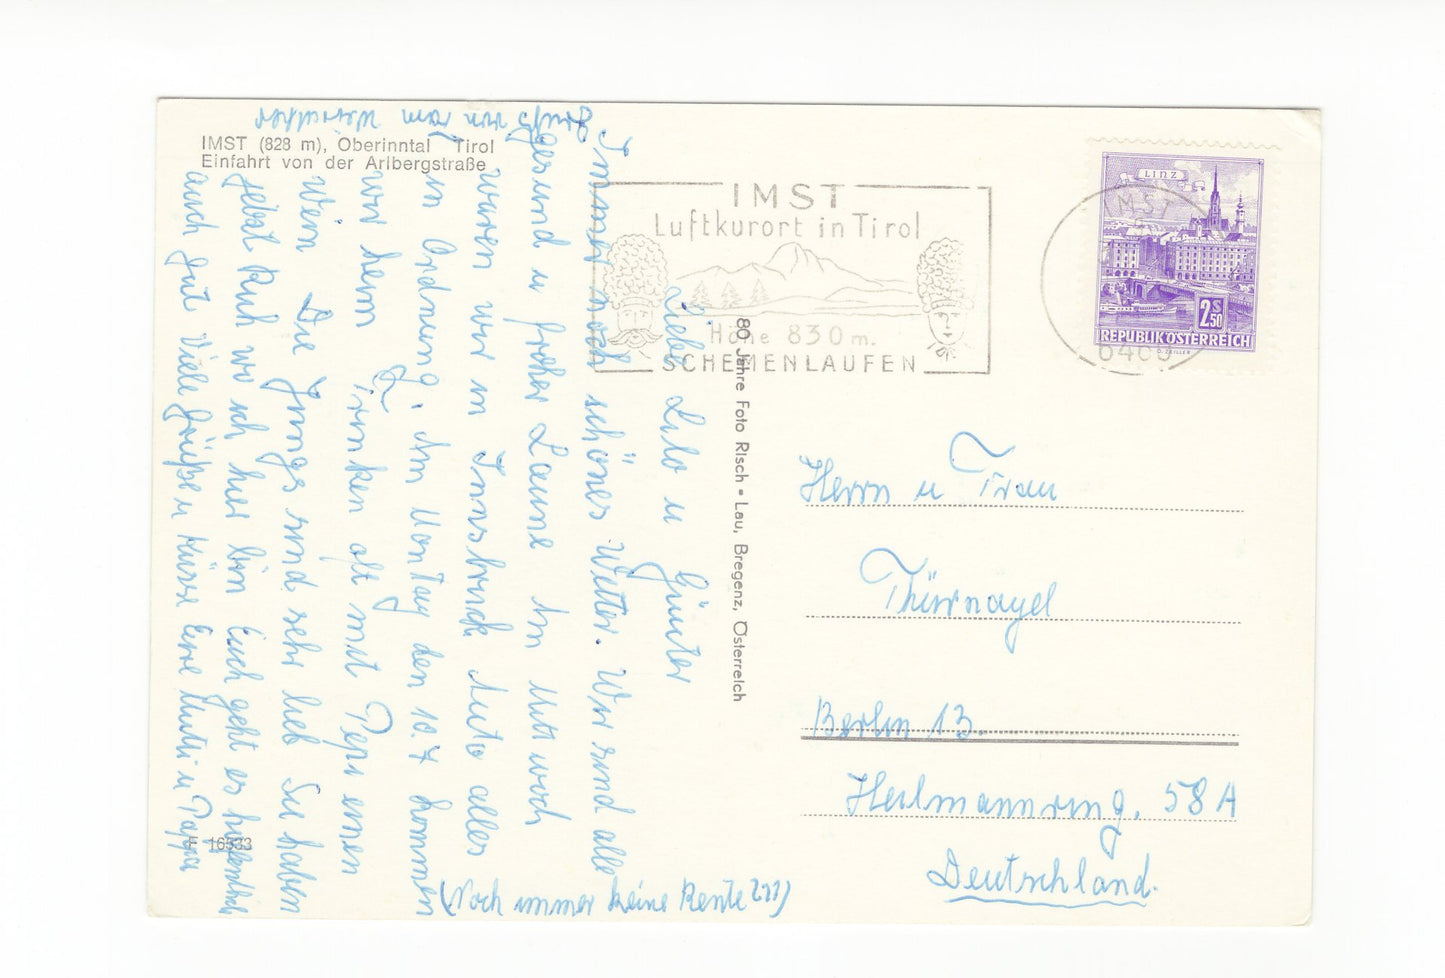 IMST (828 m), Oberinntal Tirol
Einfahrt von der Arlbergstraße
IMST
Luftkurort in Tirol
Höhe 830 m.
SCHEMENLAUFEN
IMST
6400
LINZ
2.50 S
REPUBLIK ÖSTERREICH
O. ZEILLER
Liebe Lilo u Günter
Immer noch schönes Wetter. Wir sind alle
gesund u froher Laune Im Mittwoch
waren wir in Innsbruck Auto alles
in Ordnung. Am Montag den 10. 7 kommen
wir heim Trinken oft mit Pepi einen
Wein Die Jungs sind sehr lieb Sie haben
gebat Ruh wo ich hier bin Euch geht es hoffentlich
auch gut Viele Grüße u Küsse Eure Mutti u Pappa
Gruß von
(Noch immer keine Rente ???)
80 Jahre Foto Risch-Lau, Bregenz, Österreich
Herrn u Frau
Thürnagel
Berlin 13.
Heilmannring. 58 A
Deutschland.
F 16533